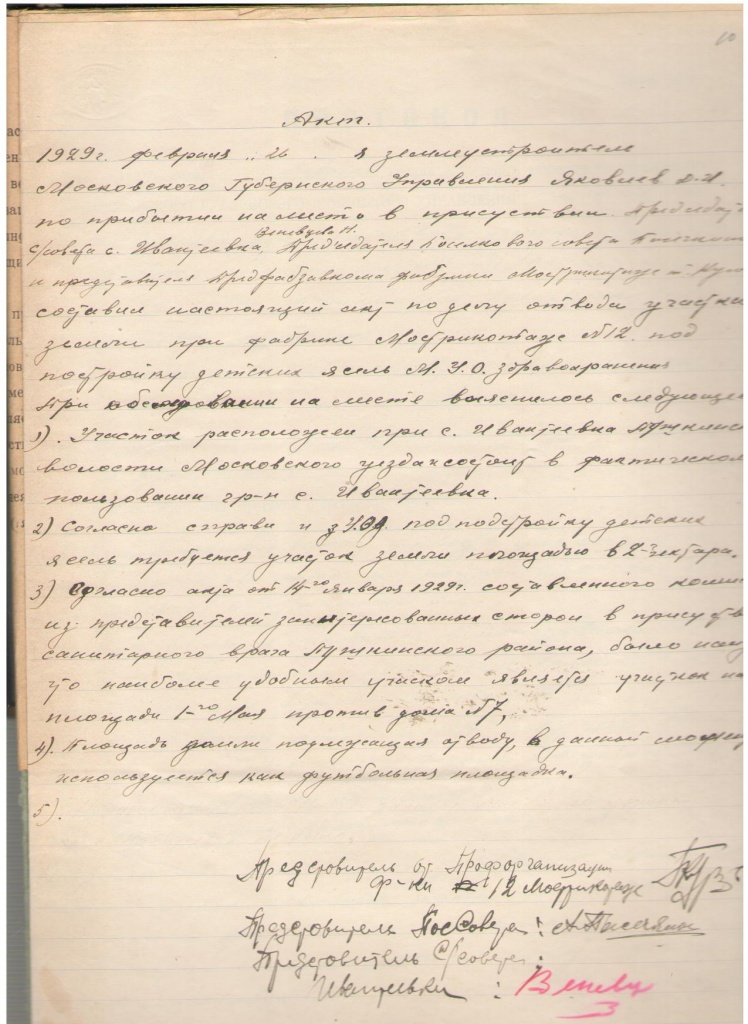 10
Акт.
1929 г. февраля „26". я землеустроитель
Московского Губернского Управления Яковлев Д.И.
по прибытии на место в присутствии Председат
с/совета с. Ивантеевка, Председателя Поселкового совета
и представителя Предфабзавкома фабрики Мострикотаж т.
составил настоящий акт по делу отвода участка
земли при фабрике Мострикотаж №12. под
постройку детских ясель М.У.О. здравоохранения
При обследовании на месте выяснилось следующее
1). Участок расположен при с. Ивантеевка Пушкинск
волости Московского уезда и состоит в фактическом
пользовании гр-н с. Ивантеевка.
2) Согласно справки под подстройку детских
ясель требуется участок земли площадью в 2-гектара.
3) Согласно акта от 14го января 1929г. составленного комис
из представителей заинтересованных сторон в присутств
санитарного врача Пушкинского района, было
что наиболе удобным участком является участок на
площади 1-го Мая против дома №7,
4). Площадь земли подлежащая отводу, в данной момент
используется как футбольная площадка.
5).
Председовитель от Профорганизации
ф-ки 12 Мострикотаж
Председовитель ПосСовета:
Председовитель С/совета:
Ивантеевки : Веневц